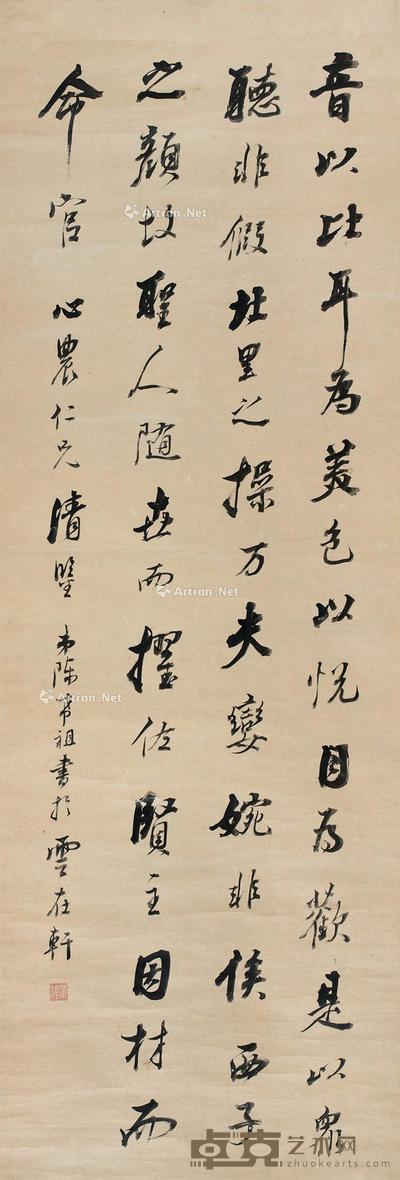 音以比耳為美色以悦目為歡是以眾
聽非假北里之操万夫孌婉非俟西子
之顏故聖人随世而擢佐賢主因材而
命官 心農仁兄清鑒 弟陳希祖書於雲在軒
Artron.Net
Artron.Net
Artron.Net
Artron.Net
卓克艺术网
www.zhuokearts.com